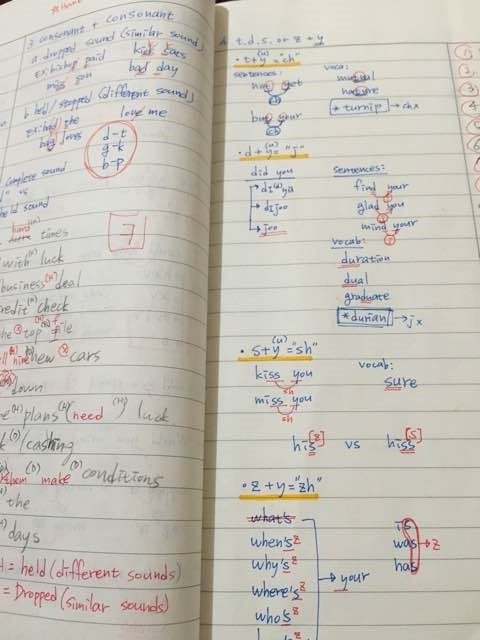 3. consonant + consonant
a. dropped sound (similar sound)
ex: bishop paid
kick cats
miss son
bad day
b. held/stopped (different sound)
ex: had the
love me
big jones
d-t
g-k
b-p
complete sound
vs
held sound
7
hard (H) times
with (H) luck
business (H) deal
credit (H) check
the top file
new cars
down
plans (H) (need (H)) luck
(D) casting
them make (D) conditions
the
days
H = held (different sounds)
= Dropped (similar sounds)
A. t. d. s. or z + y
• t+y (u) = "ch"
sentences:
not yet
ch
but your
ch
voca:
mutual
nature
* turnip → ch x
• d + y (u) = "j"
did you
di(d)ya
dijoo
joo
sentences:
find your
glad you
mind your
j
vocab:
duration
dual
graduate
* durian → j x
• s+y (u) = "sh"
kiss you
sh
miss you
sh
vocab:
sure
his [z] vs hiss [s]
• z + y = "zh"
what's
when's z
why's z
where's z
who's z
→ your
is
was → z
has